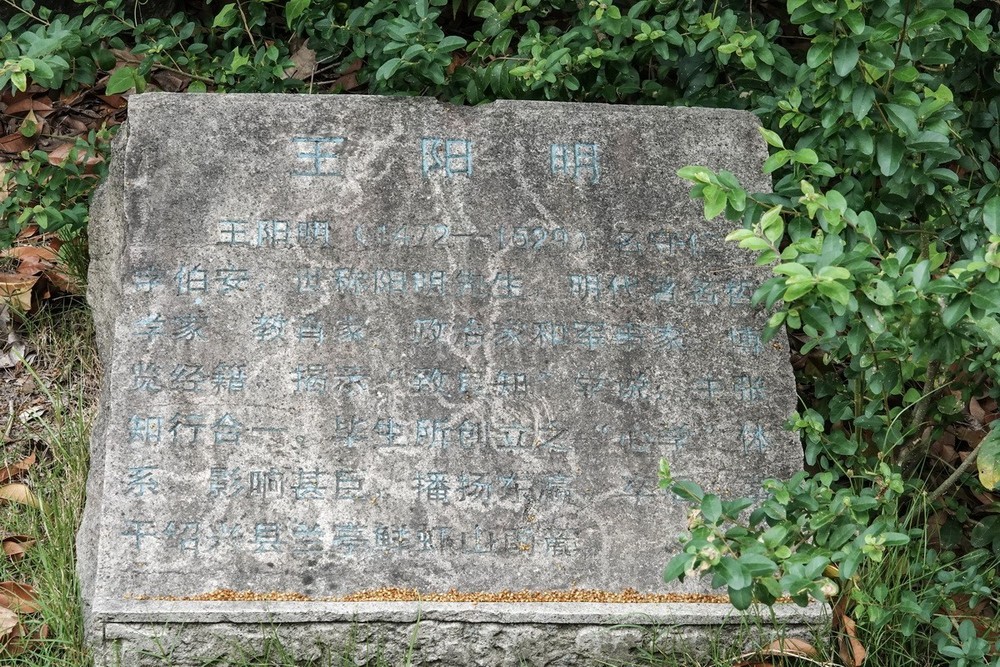 王阳明
王阳明（1472—1529）名守仁
字伯安 世称阳明先生 明代著名哲
学家 教育家 政治家和军事家 博
览经籍 揭示“致良知”学说，主张
知行合一。毕生所创立之“心学”体
系 影响甚巨，播扬东瀛
于绍兴县兰亭鲜虾山南麓